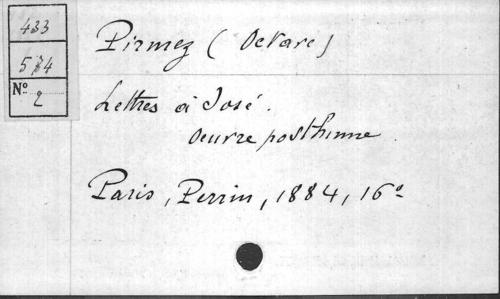 433
574
Nº 2
Pirmez (Octave)
Lettres à José.
Oeuvre posthume
Paris, Perrin, 1884, 16º